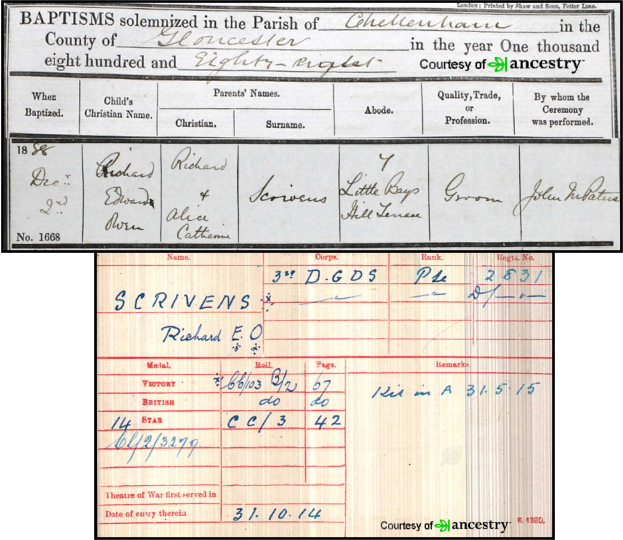 London: Printed by Shaw and Sons, Fetter Lane.
BAPTISMS solemnized in the Parish of Cheltenham in the
County of Gloucester in the year One thousand
eight hundred and Eighty-eight
Courtesy of ancestry
When Baptized. Child's Christian Name. Parents' Names. Abode. Quality, Trade, or Profession. By whom the Ceremony was performed.
Christian. Surname.
1888 Dec. 2nd
No. 1668
Richard Edward Owen
Richard & Alice Catherine
Scrivens
7 Little Bays Hill
Groom
John
Name. Corps. Rank. Regtl. No.
SCRIVENS 3rd D.GDS Pte 2831
D/
Richard E. O.
Medal. Roll. Page. Remarks
VICTORY 67 Kil in A 31.5.15
BRITISH do do
14 STAR CC/3 42
Theatre of War first served in
Date of entry therein 31.10.14
Courtesy of ancestry
K 1380.